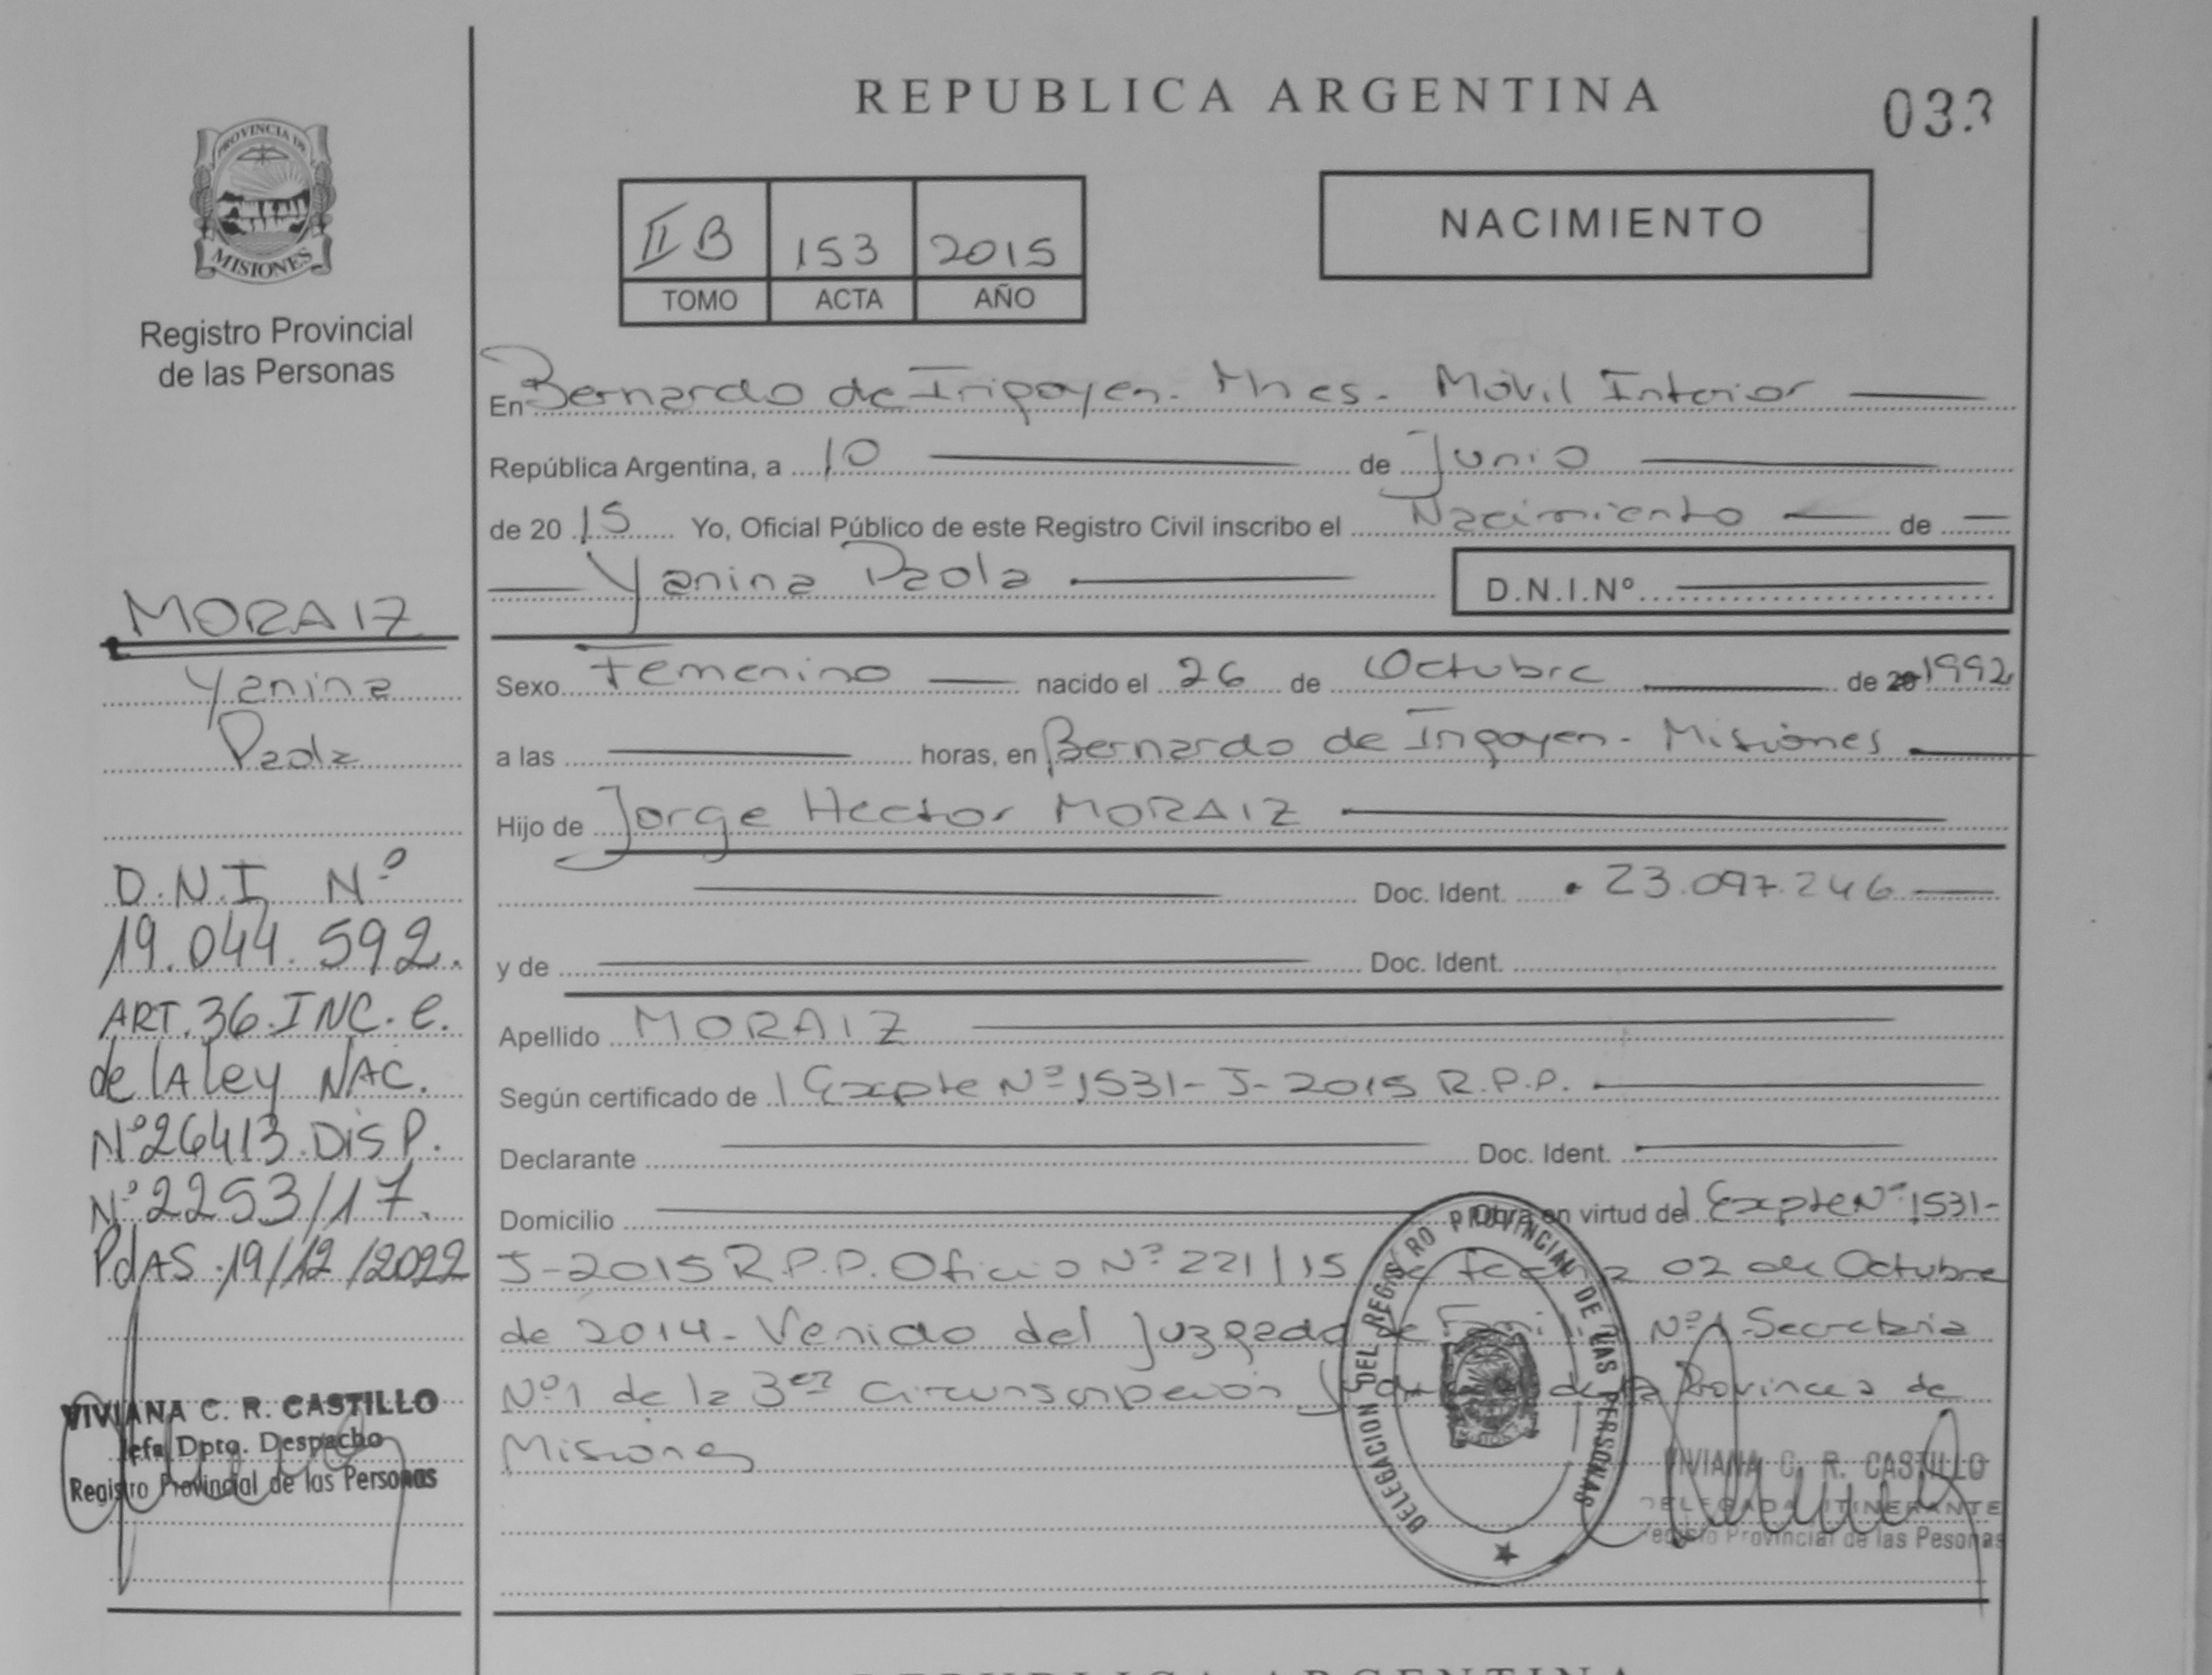 REPUBLICA ARGENTINA
033
PROVINCIA DE
MISIONES
Registro Provincial
de las Personas
II B 153 2015
TOMO ACTA AÑO
NACIMIENTO
En Bernardo de Irigoyen. Mnes. Móvil Interior
República Argentina, a 10 de Junio
de 2015 Yo, Oficial Público de este Registro Civil inscribo el Nacimiento de
Yanina Paola D.N.I.Nº
Sexo Femenino nacido el 26 de Octubre de 20 1992
a las horas, en Bernardo de Irigoyen - Misiones
Hijo de Jorge Hector MORAIZ
Doc. Ident. 23.097.246
y de Doc. Ident.
Apellido MORAIZ
Según certificado de Expte Nº 1531-J-2015 R.P.P.
Declarante Doc. Ident.
Domicilio Obra en virtud del Expte Nº 1531-
J-2015 R.P.P. Oficio Nº 221/15 de fecha 02 de Octubre
de 2014 - Venido del Juzgado de Familia Nº1 Secretaria
Nº1 de la 3era Circunscripción de la Provincia de
Misiones
MORAIZ
Yanina
Paola
D.N.I Nº
19.044.592.
ART.36.INC.e.
de la Ley NAC.
Nº26413.DISP.
Nº2253/17.
PdAS.19/12/2022
VIVIANA C. R. CASTILLO
Jefa Dpto. Despacho
Registro Provincial de las Personas
DELEGACION DEL REGISTRO PROVINCIAL DE LAS PERSONAS
MISIONES
VIVIANA C. R. CASTILLO
DELEGADA ITINERANTE
Registro Provincial de las Pesonas